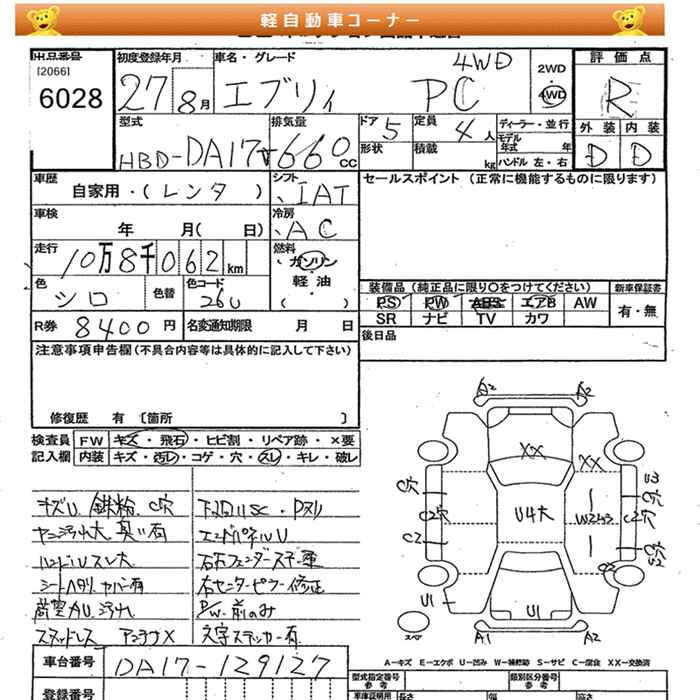 軽自動車コーナー
出品番号 初度登録年月 車名・グレード 4WD 2WD 評価点
[2066]
6028 27 8月 エブリィ PC 4WD R
型式 排気量 ドア 5 定員 4人 ディーラー・並行 外装 内装
HBD-DA17V 660cc 形状 積載 kg モデル年式 年 D D
ハンドル 左・右
車歴 自家用・(レンタ) シフト IAT セールスポイント (正常に機能するものに限ります)
車検 年 月(日) 冷房 AC
走行 10万8千062km 燃料 ガソリン・軽油・( )
色 シロ 色替 色コード 26U
装備品 (純正品に限り○をつけてください) 新車保証書
PS PW ABS エアB AW 有・無
SR ナビ TV カワ
R券 8400円 名変通知期限 月 日 後日品
注意事項申告欄(不具合内容等は具体的に記入して下さい)
修復歴 有 〔箇所 〕
検査員 FW キズ・飛石・ヒビ割・リペア跡・×要
記入欄 内装 キズ・汚レ・コゲ・穴・スレ・キレ・破レ
キズU 鉄輪 C穴
ヤニ汚れ大 臭い有 エンドパネルU
ハンドルスレ大
シートヘタリ カバー有 右センターピラー修正
荷室AU汚れ P/W.前のみ
スタッドレス アンテナX 文字ステッカー有
A2 A2
XX
XX
U4大
C2穴 W2
C2
U1 U1
スペア A1 A2
車台番号 DA17-129127
A-キズ E-エクボ U-凹み W-補修跡 S-サビ C-腐食 XX-交換済
登録番号 型式指定番号 参考 類別区分番号 参考
車庫証明用 長さ 幅 高さ